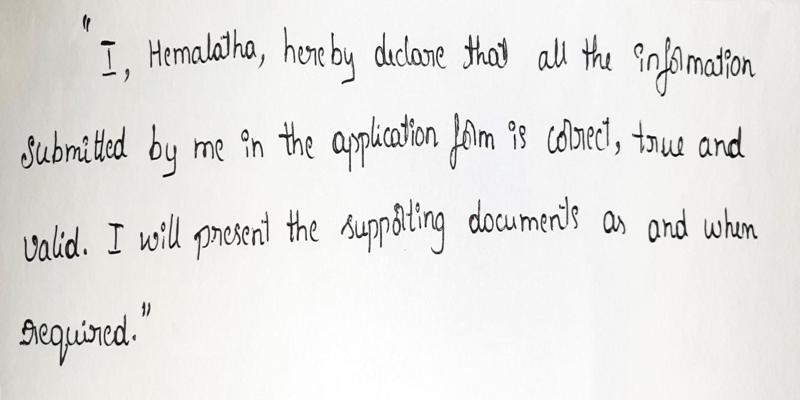 "I, Hemalatha, hereby declare that all the information
submitted by me in the application form is correct, true and
valid. I will present the supporting documents as and when
required."